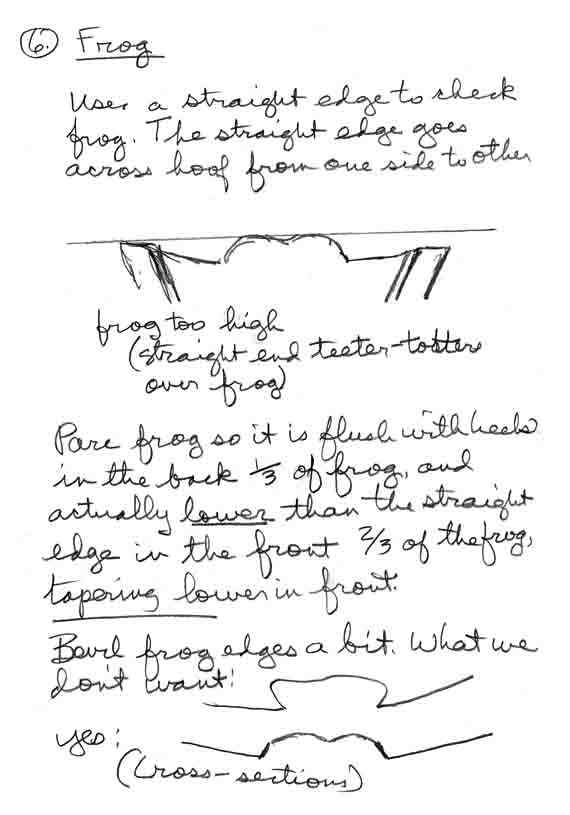 6. Frog
Use a straight edge to check
frog. The straight edge goes
across hoof from one side to other
frog too high
(straight end teeter-totters
over frog)
Pare frog so it is flush with heels
in the back 1/3 of frog, and
actually lower than the straight
edge in the front 2/3 of the frog,
tapering lower in front.
Bevil frog edges a bit. What we
don't want:
yes:
(Cross-sections)